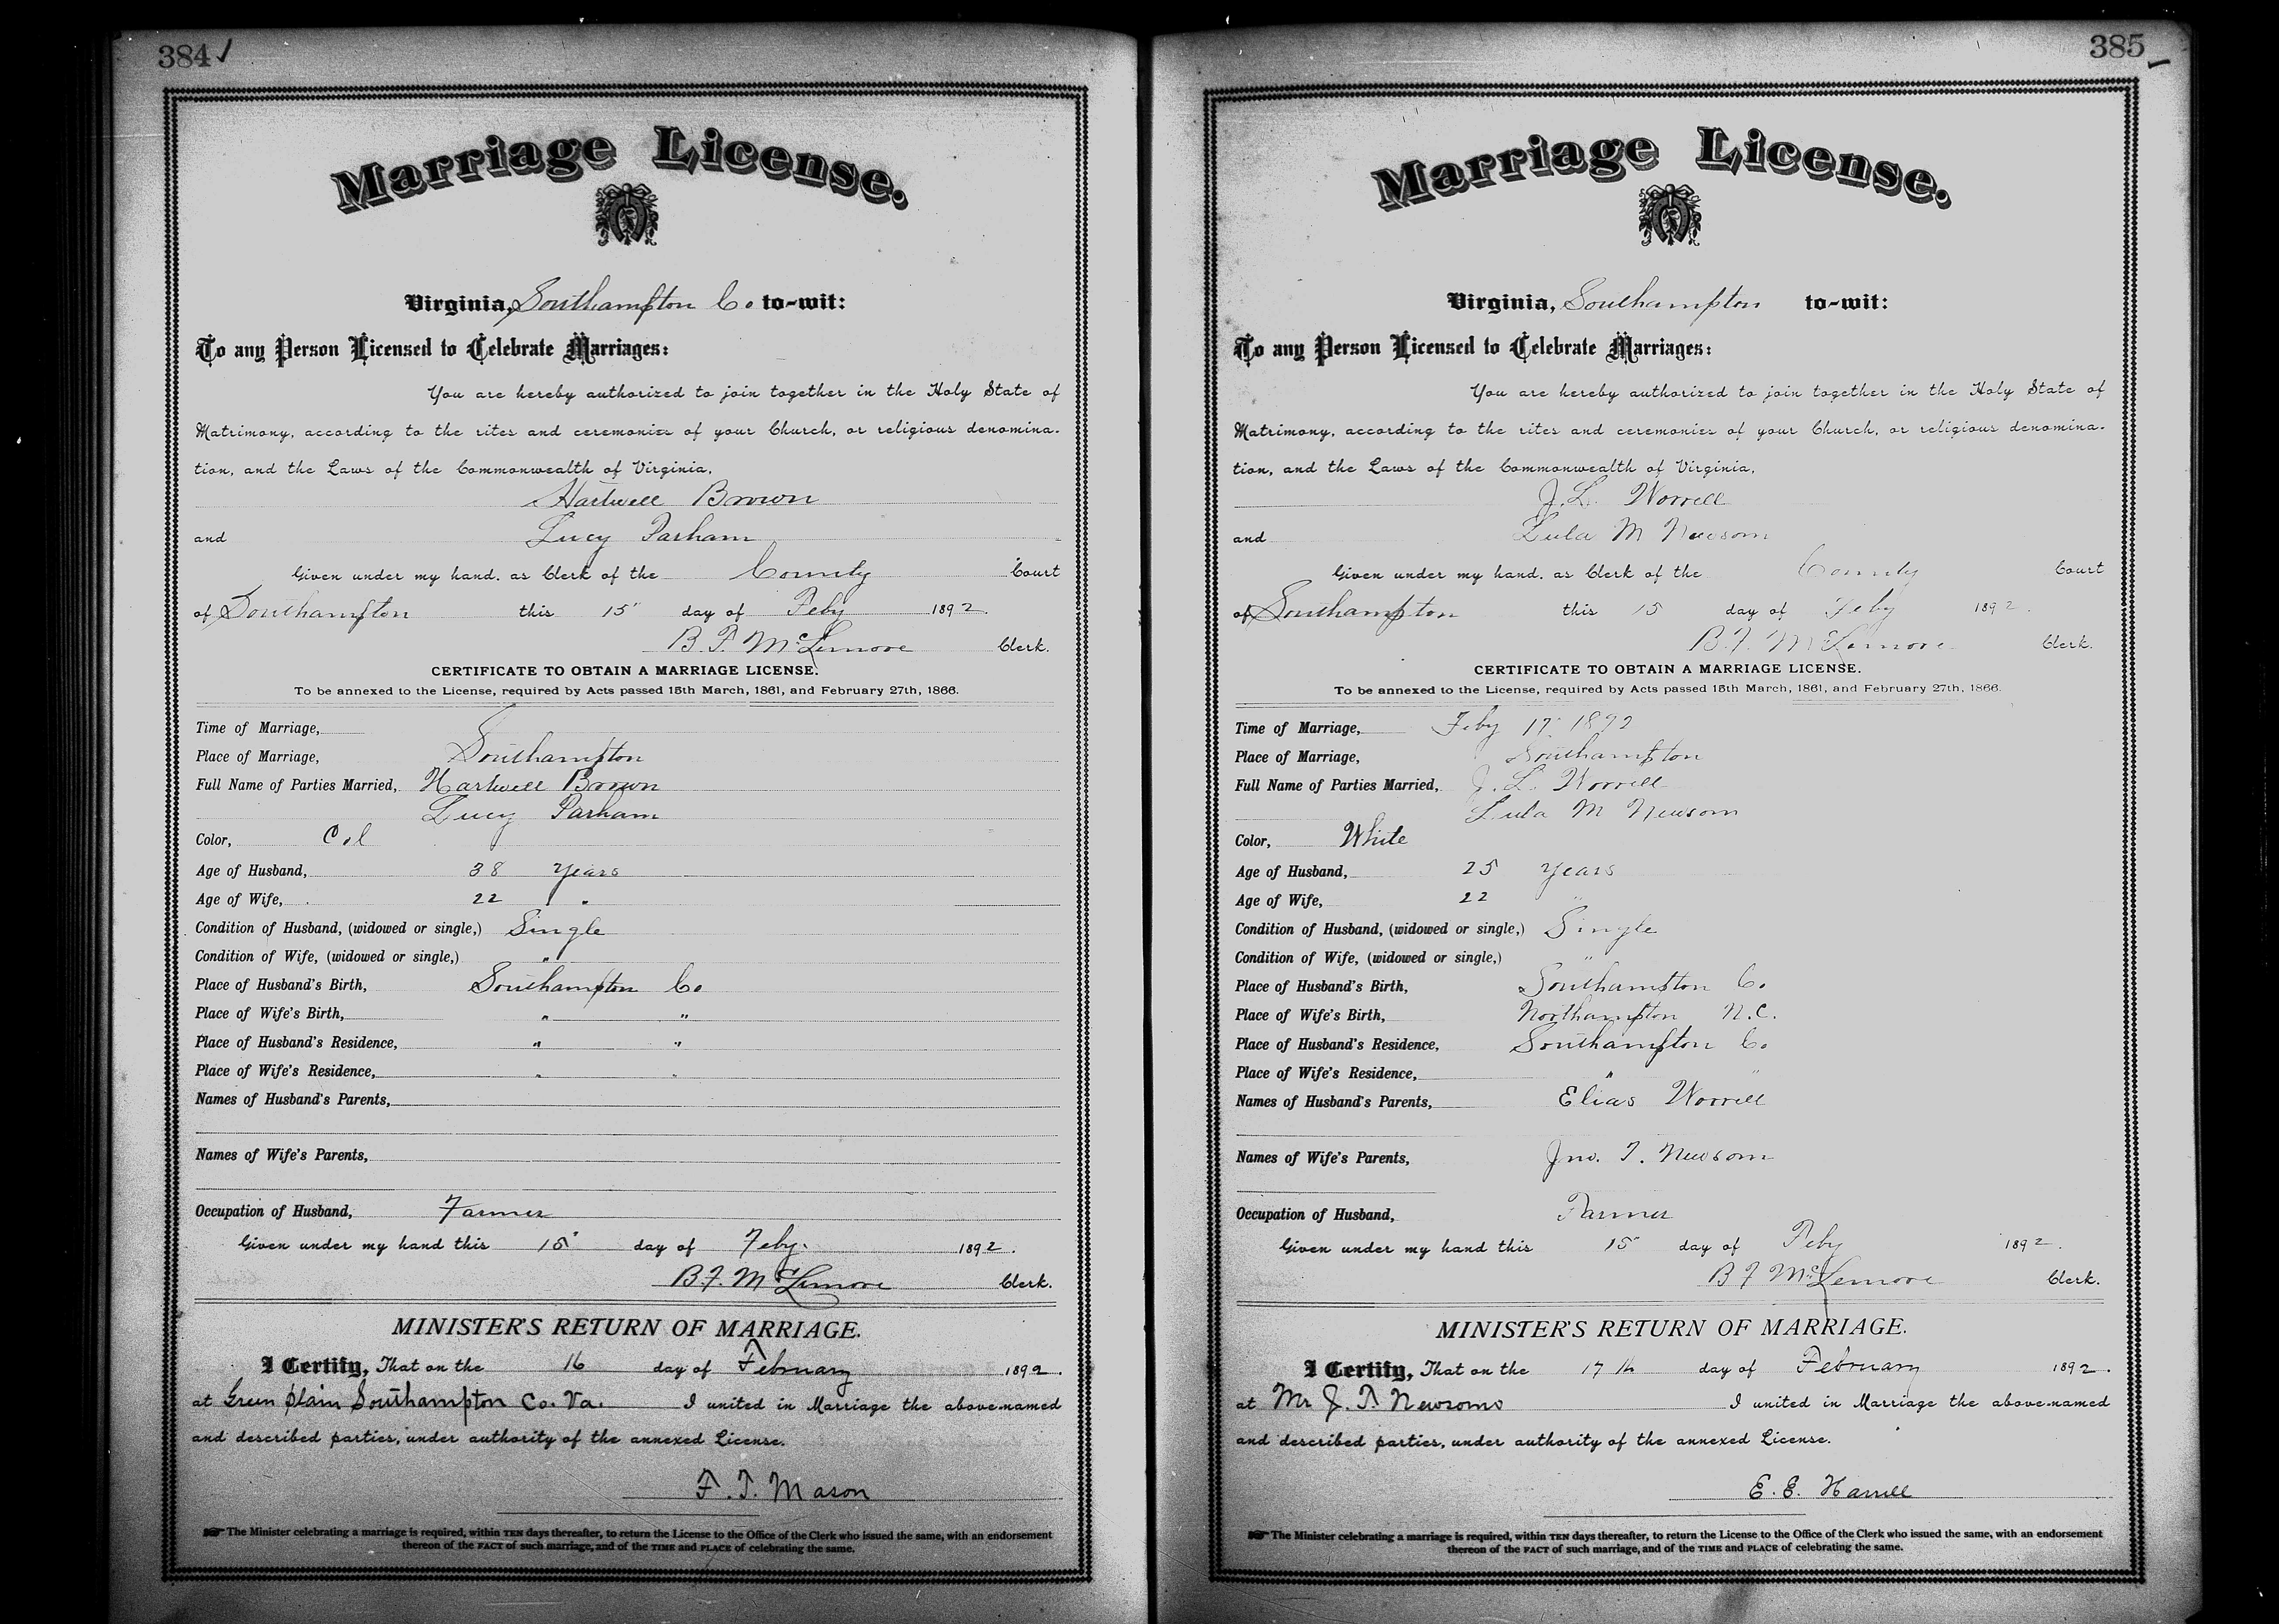 384
Marriage License.
Virginia, Southampton Co. to-wit:
To any Person Licensed to Celebrate Marriages:
You are hereby authorized to join together in the Holy State of
Matrimony, according to the rites and ceremonies of your Church, or religious denomina-
tion, and the Laws of the Commonwealth of Virginia,
Hartwell Brown
and Lucy Parham
Given under my hand, as Clerk of the County Court
of Southampton this 15" day of Feby 1892.
B. F. McLemore Clerk.
CERTIFICATE TO OBTAIN A MARRIAGE LICENSE.
To be annexed to the License, required by Acts passed 15th March, 1861, and February 27th, 1866.
Time of Marriage,
Place of Marriage, Southampton
Full Name of Parties Married, Hartwell Brown
Lucy Parham
Color, Col
Age of Husband, 38 years
Age of Wife, 22 "
Condition of Husband, (widowed or single,) Single
Condition of Wife, (widowed or single,) "
Place of Husband's Birth, Southampton Co
Place of Wife's Birth, " "
Place of Husband's Residence, " "
Place of Wife's Residence, " "
Names of Husband's Parents,
Names of Wife's Parents,
Occupation of Husband, Farmer
Given under my hand this 15" day of Feby. 1892.
B. F. McLemore Clerk.
MINISTER'S RETURN OF MARRIAGE.
I Certify, That on the 16 day of February 1892.
at Green plain Southampton Co. Va. I united in Marriage the above-named
and described parties, under authority of the annexed License.
F. T. Mason
The Minister celebrating a marriage is required, within TEN days thereafter, to return the License to the Office of the Clerk who issued the same, with an endorsement
thereon of the FACT of such marriage, and of the TIME and PLACE of celebrating the same.
385
Marriage License.
Virginia, Southampton to-wit:
To any Person Licensed to Celebrate Marriages:
You are hereby authorized to join together in the Holy State of
Matrimony, according to the rites and ceremonies of your Church, or religious denomina-
tion, and the Laws of the Commonwealth of Virginia,
J. L. Worrell
and Lula M Newsom
Given under my hand, as Clerk of the County Court
of Southampton this 15 day of Feby 1892.
B. F. McLemore Clerk.
CERTIFICATE TO OBTAIN A MARRIAGE LICENSE.
To be annexed to the License, required by Acts passed 15th March, 1861, and February 27th, 1866.
Time of Marriage, Feby 17" 1892
Place of Marriage, Southampton
Full Name of Parties Married, J. L. Worrell
Lula M Newsom
Color, White
Age of Husband, 25 years
Age of Wife, 22 "
Condition of Husband, (widowed or single,) Single
Condition of Wife, (widowed or single,) "
Place of Husband's Birth, Southampton Co.
Place of Wife's Birth, Northampton N.C.
Place of Husband's Residence, Southampton Co.
Place of Wife's Residence, " "
Names of Husband's Parents, Elias Worrell
Names of Wife's Parents, Jno. T. Newsom
Occupation of Husband, Farmer
Given under my hand this 15" day of Feby 1892.
B F McLemore Clerk.
MINISTER'S RETURN OF MARRIAGE.
I Certify, That on the 17th day of February 1892.
at Mr J. T. Newsoms I united in Marriage the above-named
and described parties, under authority of the annexed License.
E. E. Harrell
The Minister celebrating a marriage is required, within TEN days thereafter, to return the License to the Office of the Clerk who issued the same, with an endorsement
thereon of the FACT of such marriage, and of the TIME and PLACE of celebrating the same.